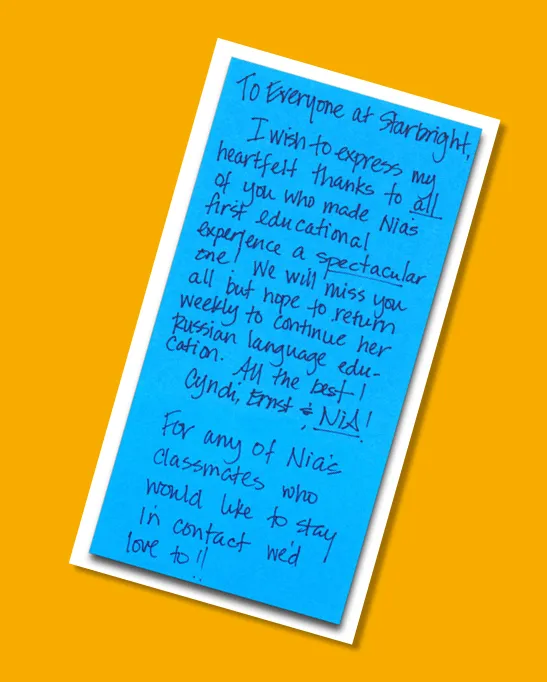 To Everyone at Starbright,
I wish to express my
heartfelt thanks to all
of you who made Nia's
first educational
experience a spectacular
one! We will miss you
all but hope to return
weekly to continue her
Russian language edu-
cation. All the best!
Cyndi, Ernst & NiA!
For any of Nia's
classmates who
would like to stay
in contact we'd
love to!!